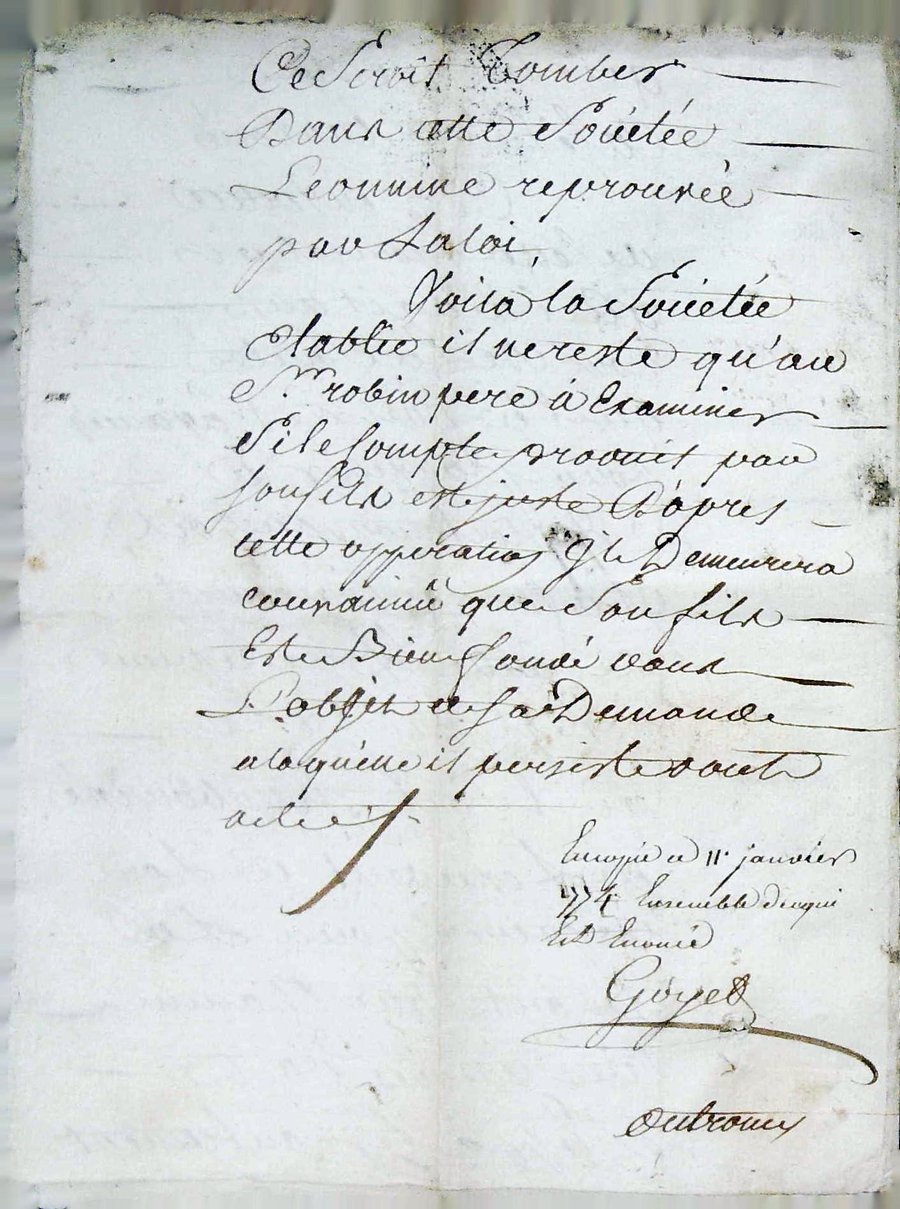 Ce Seroit Tomber
Dans cette Sociétée
Leonnine reprouvée
par La loi,
Voila la Sociétée
Etablie il ne reste qu'au
S.r robin pere à Examiner
Si le Compte produit par
Son fils est juste D'apres
cette opperation Il Demeurera
convaincû que Son fils
Est Bien fondé dans
L'objet de Sa Demande
a laquelle il persiste dont
acte
En copie ce 11e janvier
1774 Ensemble de cequi
Est Enoncé
Goyet